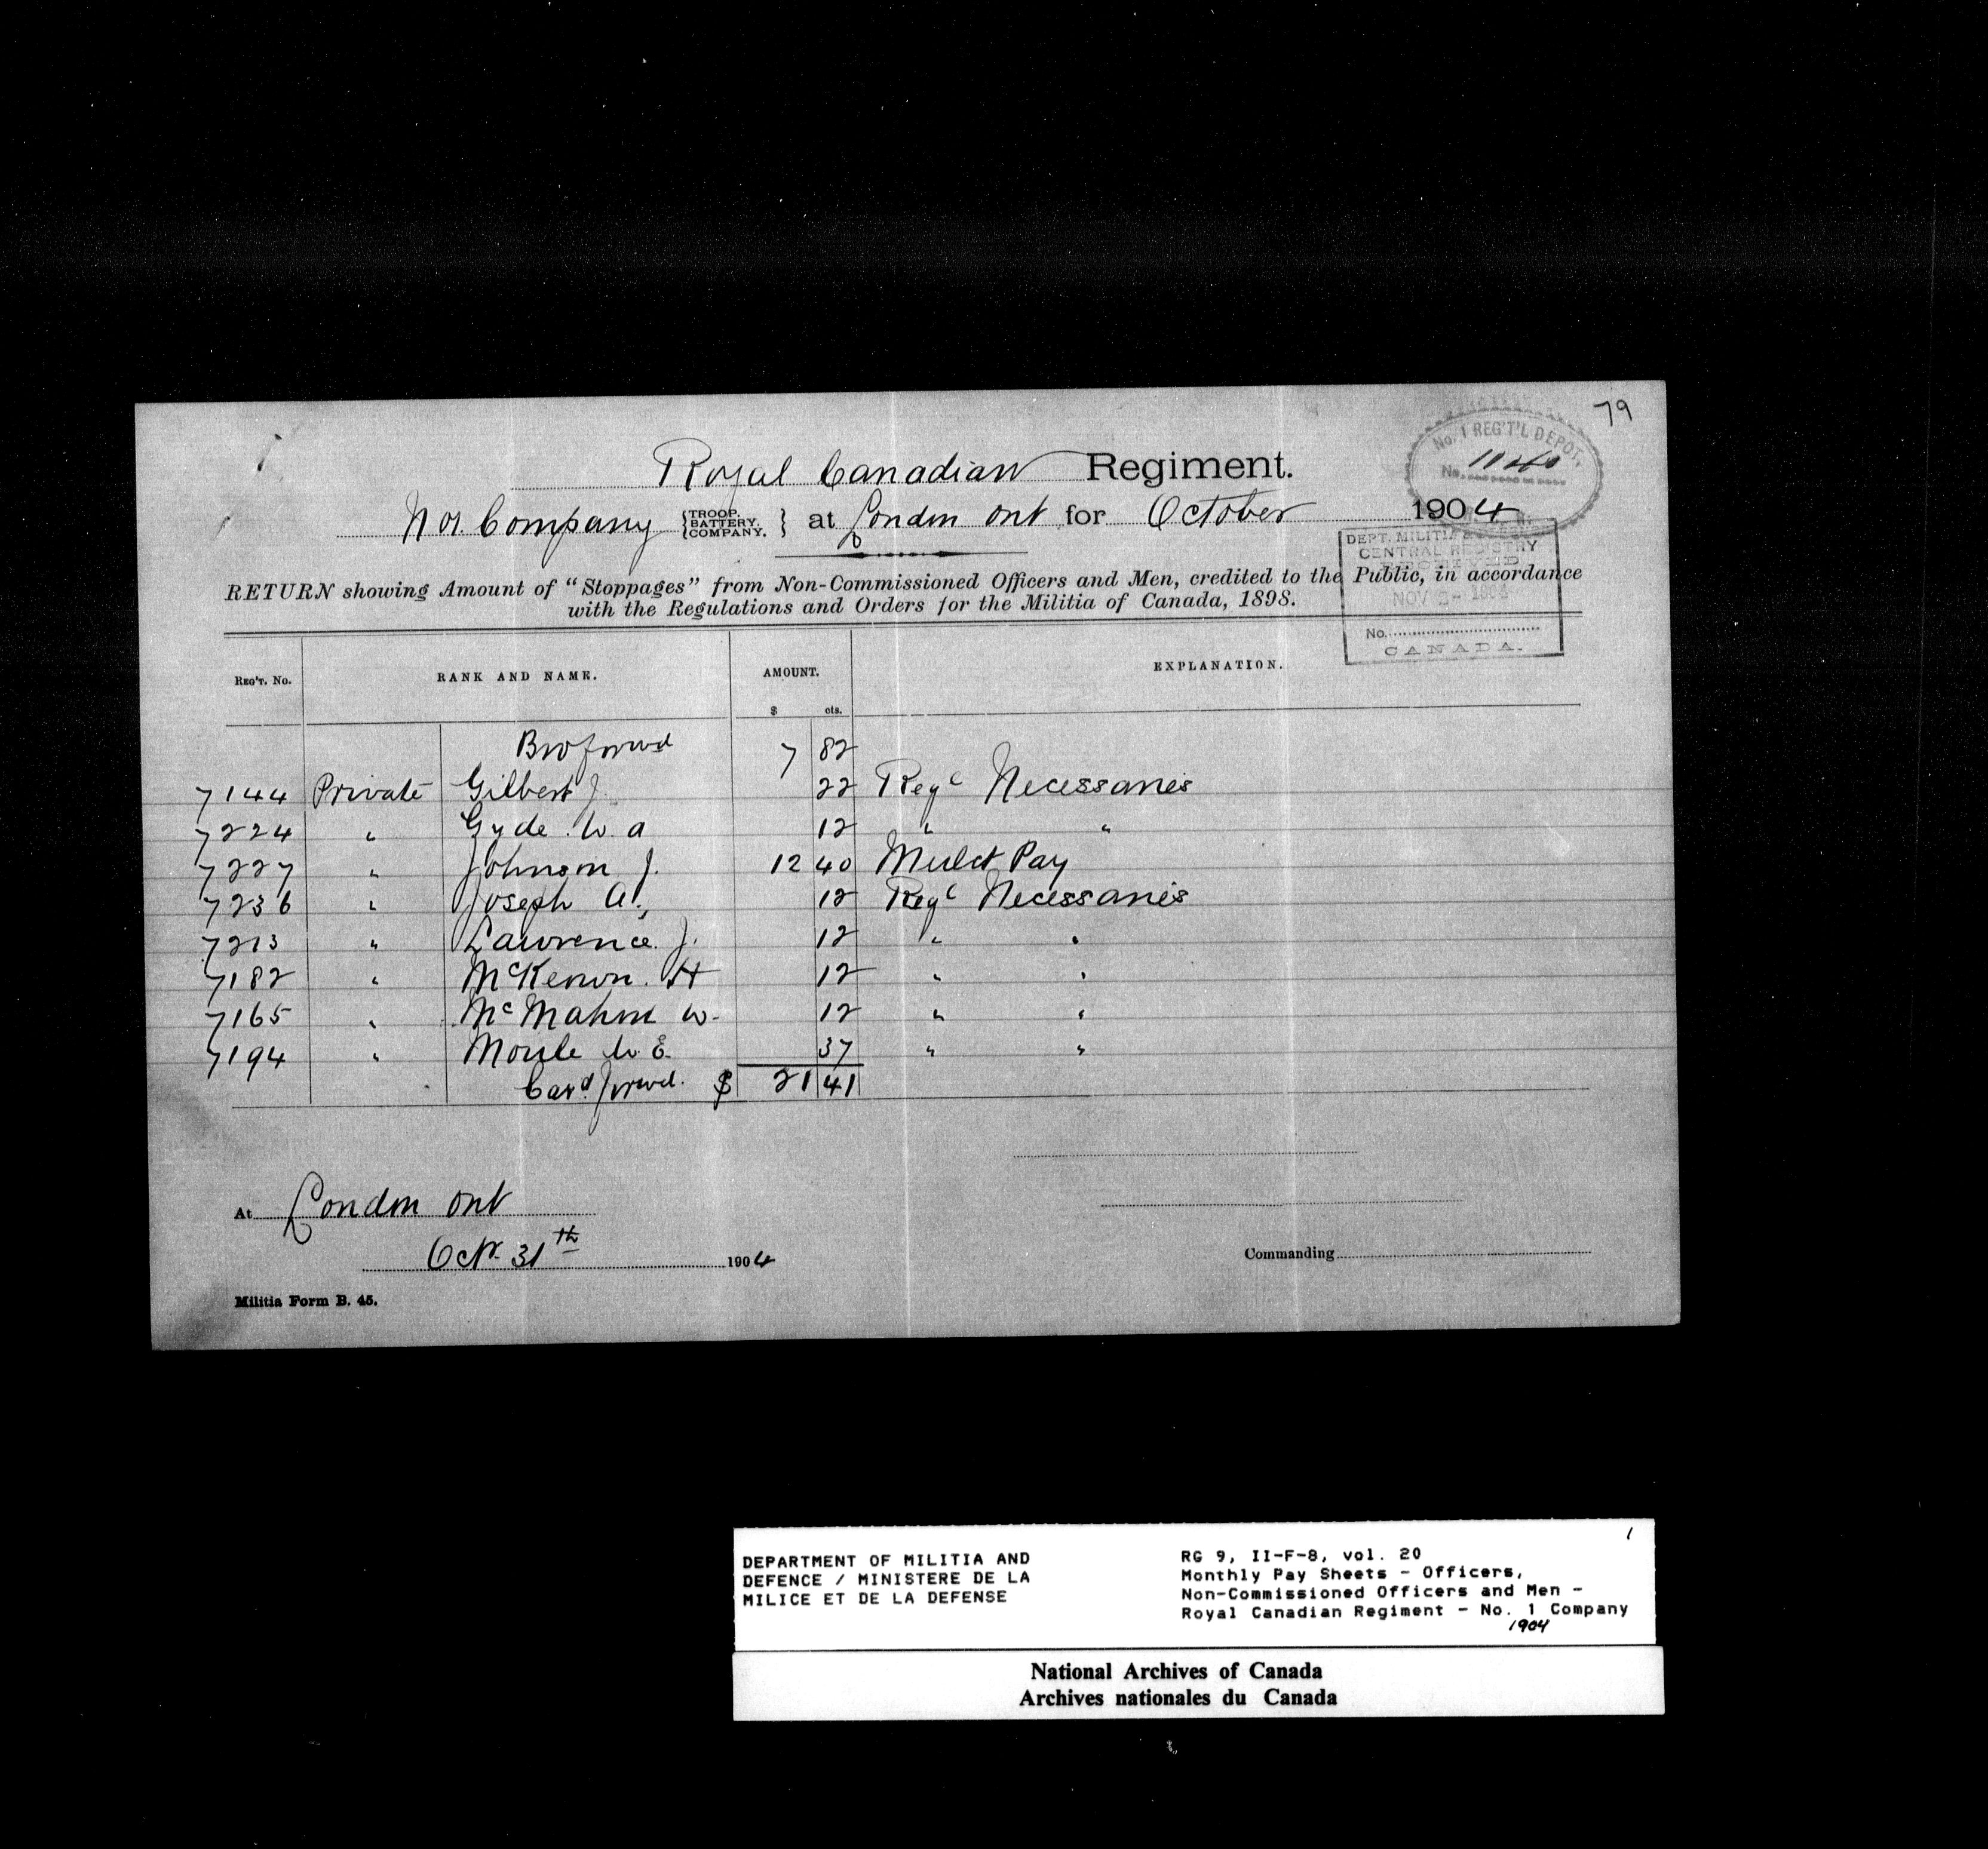 79
No. 1 REG'T'L DEPOT,
No.
Royal Canadian Regiment.
No 1. Company {TROOP. BATTERY. COMPANY.} at London Ont for October 1904
DEPT. MILITIA
CENTRAL REGISTRY
RECEIVED
NOV 2- 1904
No.
CANADA.
RETURN showing Amount of "Stoppages" from Non-Commissioned Officers and Men, credited to the Public, in accordance
with the Regulations and Orders for the Militia of Canada, 1898.
REG'T. No. RANK AND NAME. AMOUNT. EXPLANATION.
$ cts.
Bro forwd 7 82
7144 Private Gilbert J. 22 Regl Necessaries
7224 " Gyde. W. A 12 " "
7227 " Johnson J. 12 40 Mulct Pay
7236 " Joseph A., 12 Regl Necessaries
7213 " Lawrence. J. 12 " "
7182 " McKenon. H 12 " "
7165 " McMahon W. 12 " "
7194 " Moule W. E. 37 " "
Card forwd. $ 21 41
At London Ont
Oct. 31th 1904
Commanding
Militia Form B. 45.
1
DEPARTMENT OF MILITIA AND
DEFENCE / MINISTERE DE LA
MILICE ET DE LA DEFENSE
RG 9, II-F-8, vol. 20
Monthly Pay Sheets - Officers,
Non-Commissioned Officers and Men -
Royal Canadian Regiment - No. 1 Company
1904
National Archives of Canada
Archives nationales du Canada